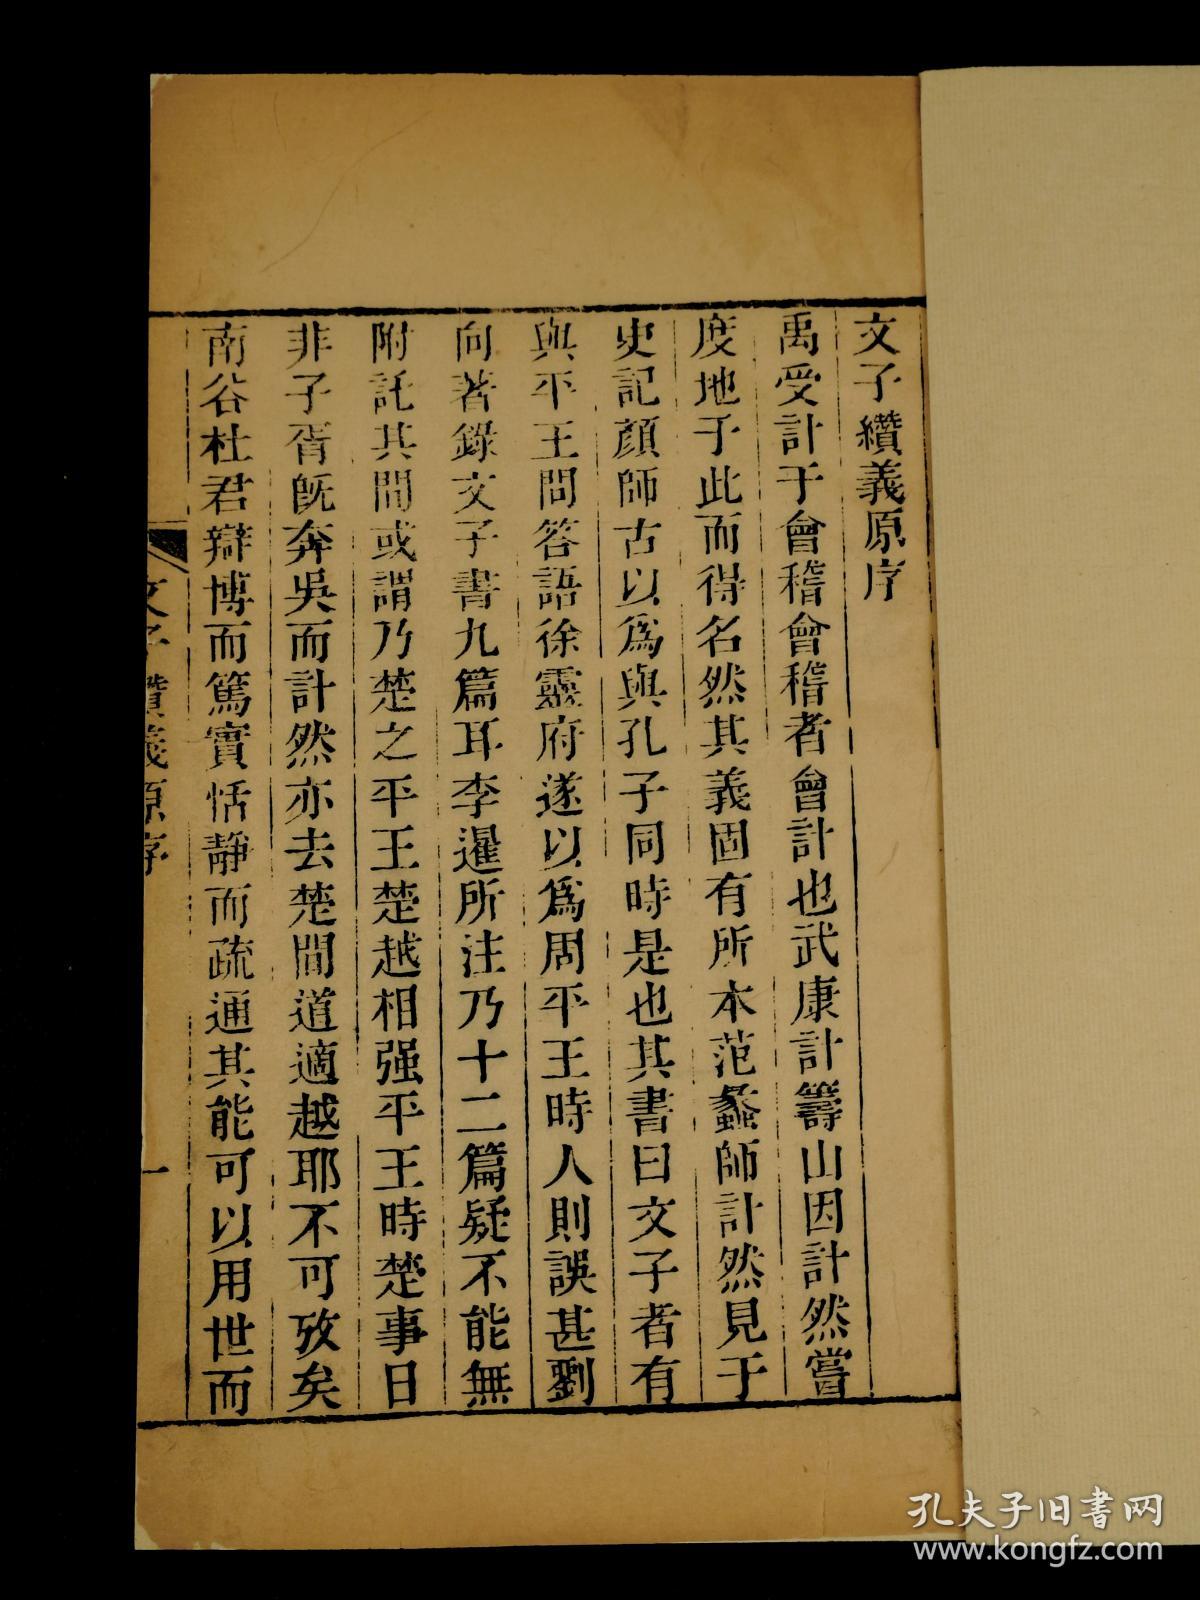 文子纘義原序
禹受計于會稽會稽者會計也武康計籌山因計然嘗
度地于此而得名然其義固有所本范蠡師計然見于
史記顏師古以爲與孔子同時是也其書曰文子者有
與平王問答語徐靈府遂以爲周平王時人則誤甚劉
向著錄文子書九篇耳李暹所注乃十二篇疑不能無
附託其間或謂乃楚之平王楚越相强平王時楚事日
非子胥旣奔吳而計然亦去楚間道適越耶不可攷矣
南谷杜君辯博而篤實恬靜而疏通其能可以用世而
文子纘義原序
一
孔夫子旧书网
www.kongfz.com